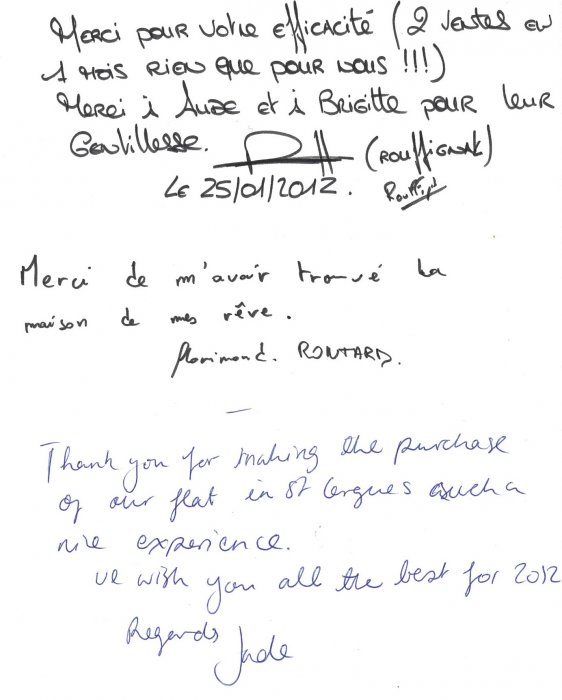 Merci pour votre efficacité (2 ventes en
1 mois rien que pour nous !!!)
Merci à Aude et à Brigitte pour leur
Gentillesse. (ROUFFIGNAC)
Le 25/01/2012.
Merci de m'avoir trouvé la
maison de mes rêve.
florimond. RONTARD.
—
Thank you for making the purchase
of our flat in St Cergues such a
nice experience.
we wish you all the best for 2012
Regards
Jade